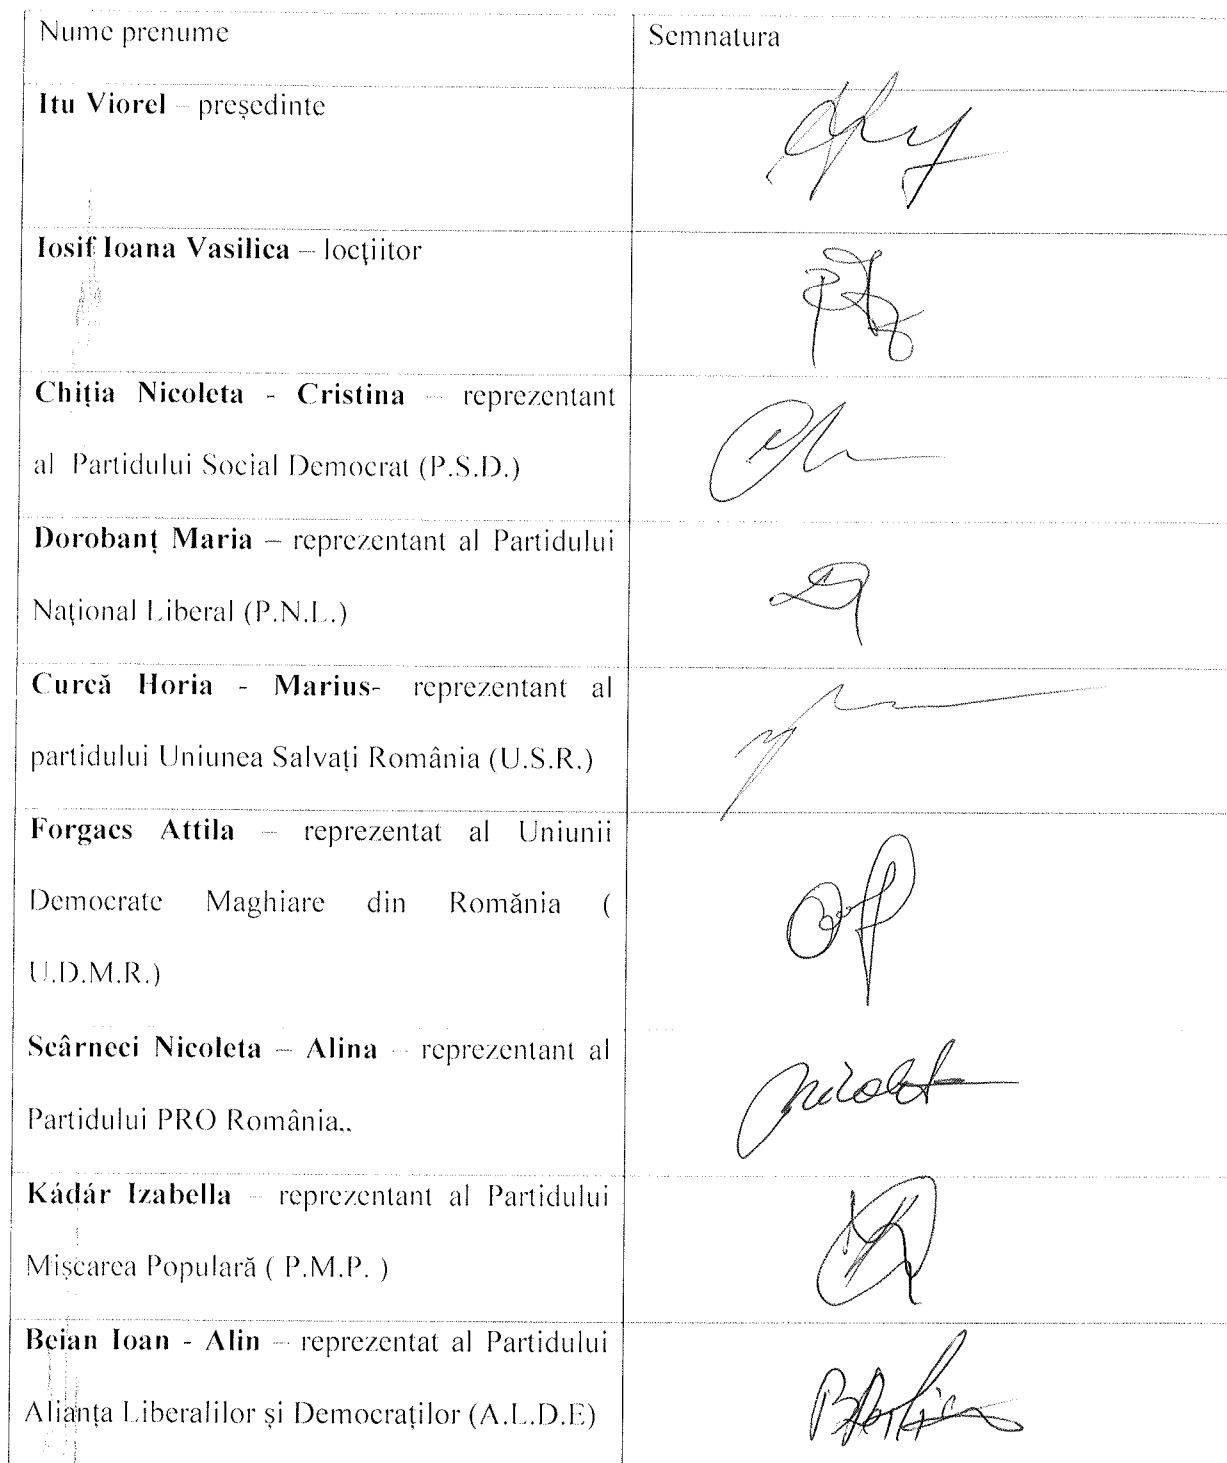 Nume prenume
Semnatura
Itu Viorel – președinte
Iosif Ioana Vasilica – locțiitor
Chiția Nicoleta - Cristina – reprezentant
al Partidului Social Democrat (P.S.D.)
Dorobanț Maria – reprezentant al Partidului
Național Liberal (P.N.L.)
Curcă Horia - Marius- reprezentant al
partidului Uniunea Salvați România (U.S.R.)
Forgacs Attila – reprezentat al Uniunii
Democrate Maghiare din Romănia (
U.D.M.R.)
Scârneci Nicoleta – Alina – reprezentant al
Partidului PRO România,.
Nicolet
Kádár Izabella – reprezentant al Partidului
Mișcarea Populară ( P.M.P. )
Beian Ioan - Alin – reprezentat al Partidului
Alianța Liberalilor și Democraților (A.L.D.E)